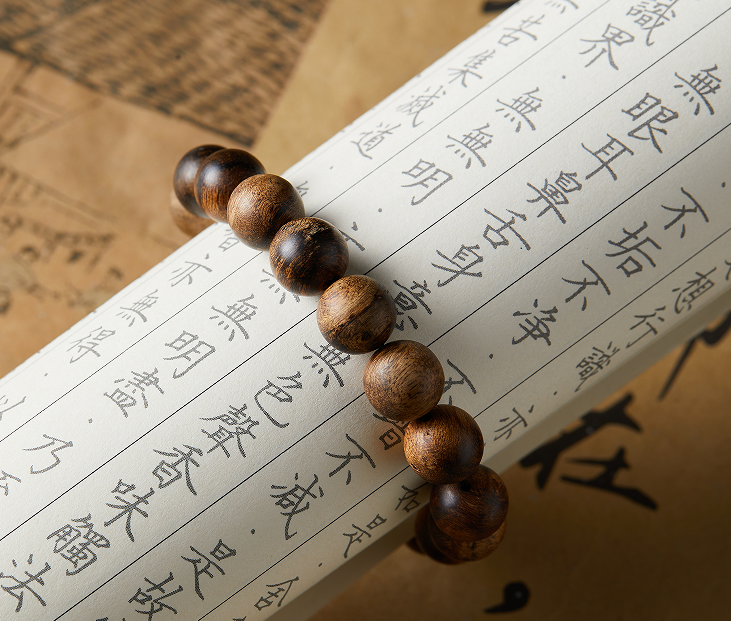 想行識·亦如是·舍
不垢不淨·不增不減·是故
無眼耳鼻舌身意·無色聲香味觸法
識界·無無明·亦無無明盡·乃至
無苦集滅道·智亦無得·以
在